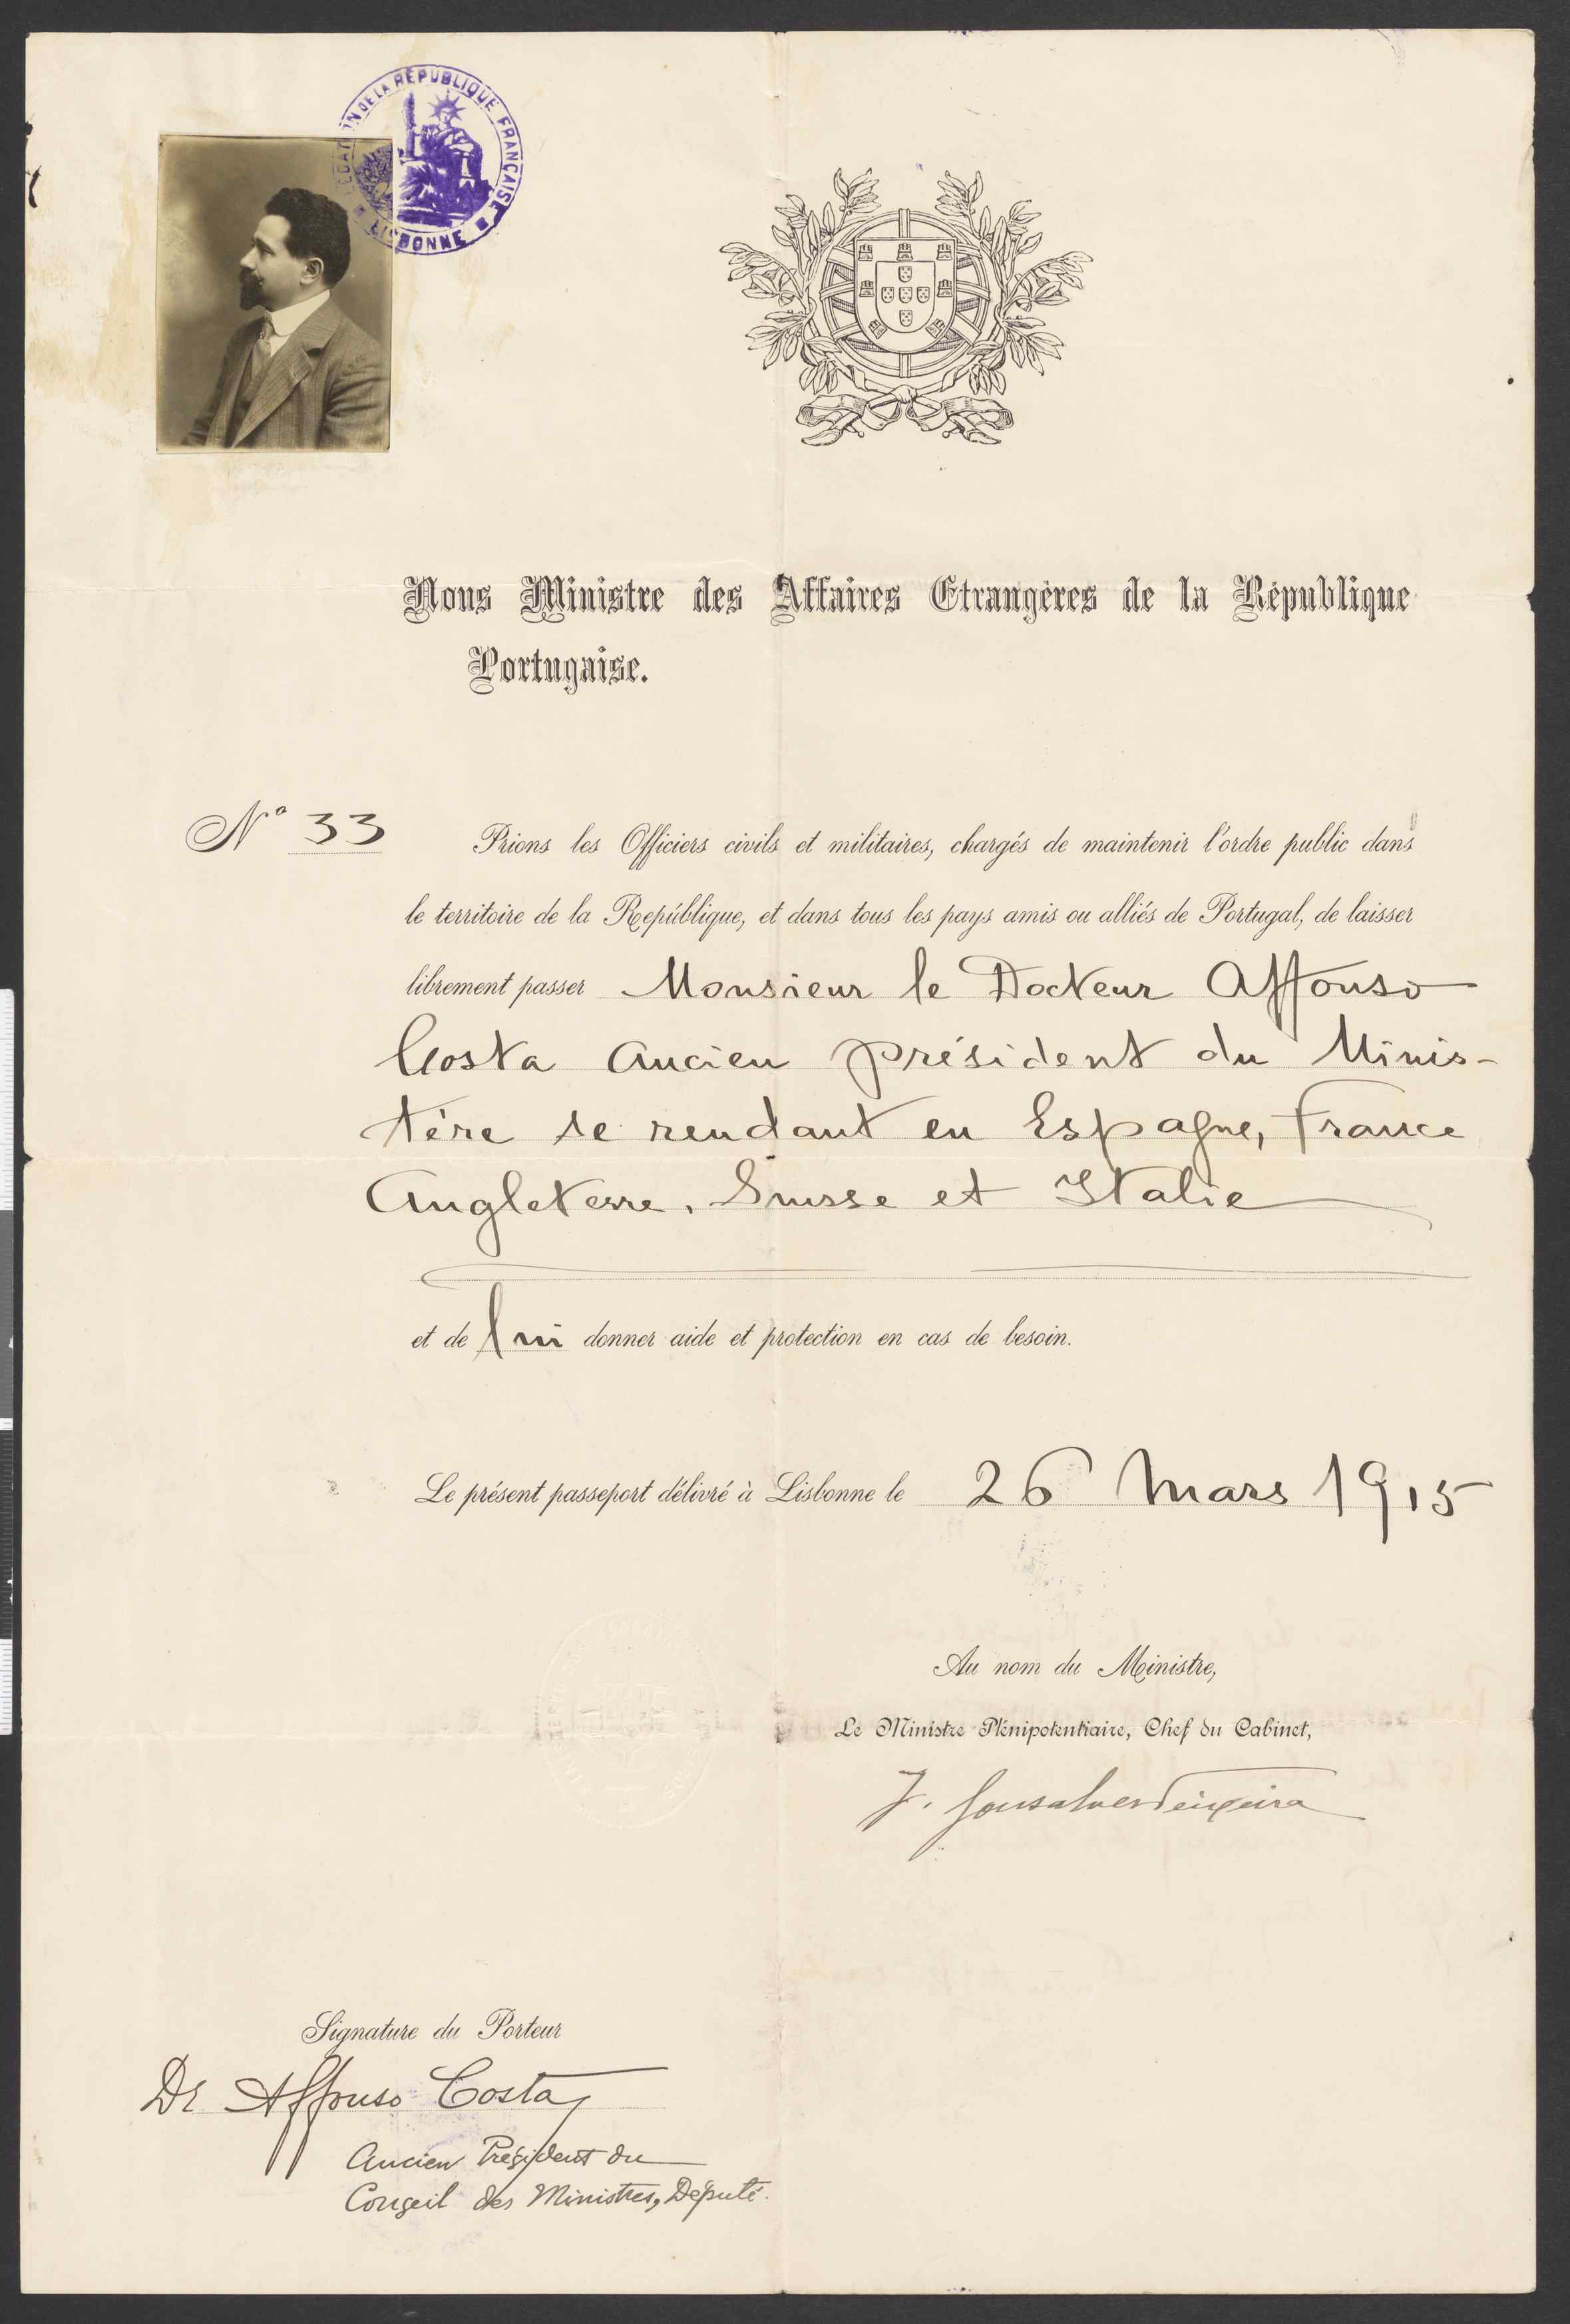 LEGATION DE LA RÉPUBLIQUE FRANÇAISE
LISBONNE
Nous Ministre des Affaires Etrangères de la République
Portugaise.
Nº 33
Prions les Officiers civils et militaires, chargés de maintenir l'ordre public dans
le territoire de la Repúblique, et dans tous les pays amis ou alliés de Portugal, de laisser
librement passer Monsieur le Docteur Affonso
Costa Ancien président du Minis-
tère se rendant en Espagne, France
Angleterre, Suisse et Italie
et de lui donner aide et protection en cas de besoin.
Le présent passeport délivré à Lisbonne le 26 Mars 1915
Au nom du Ministre,
Le Ministre Plénipotentiaire, Chef du Cabinet,
J. Gonsalves Teixeira
Signature du Porteur
Dr Affonso Costa,
Ancien Président du
Conseil des Ministres, Député.